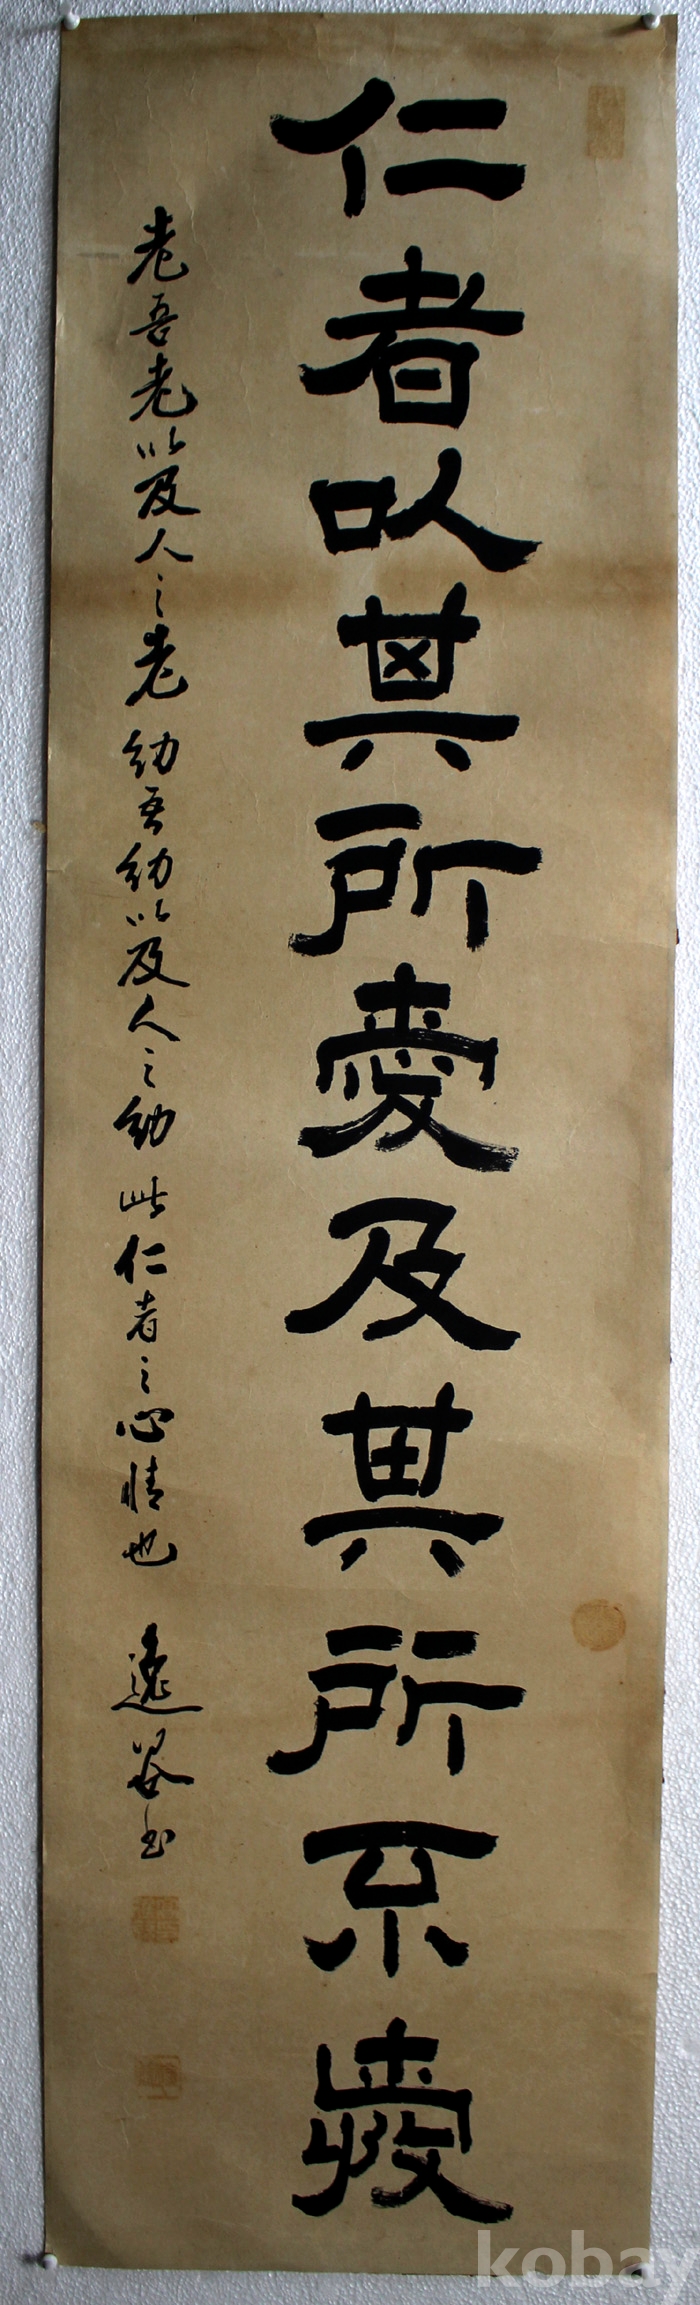 仁者以其所愛及其所不愛
老吾老以及人之老幼吾幼以及人之幼此仁者之心情也 逸翁書
kobay